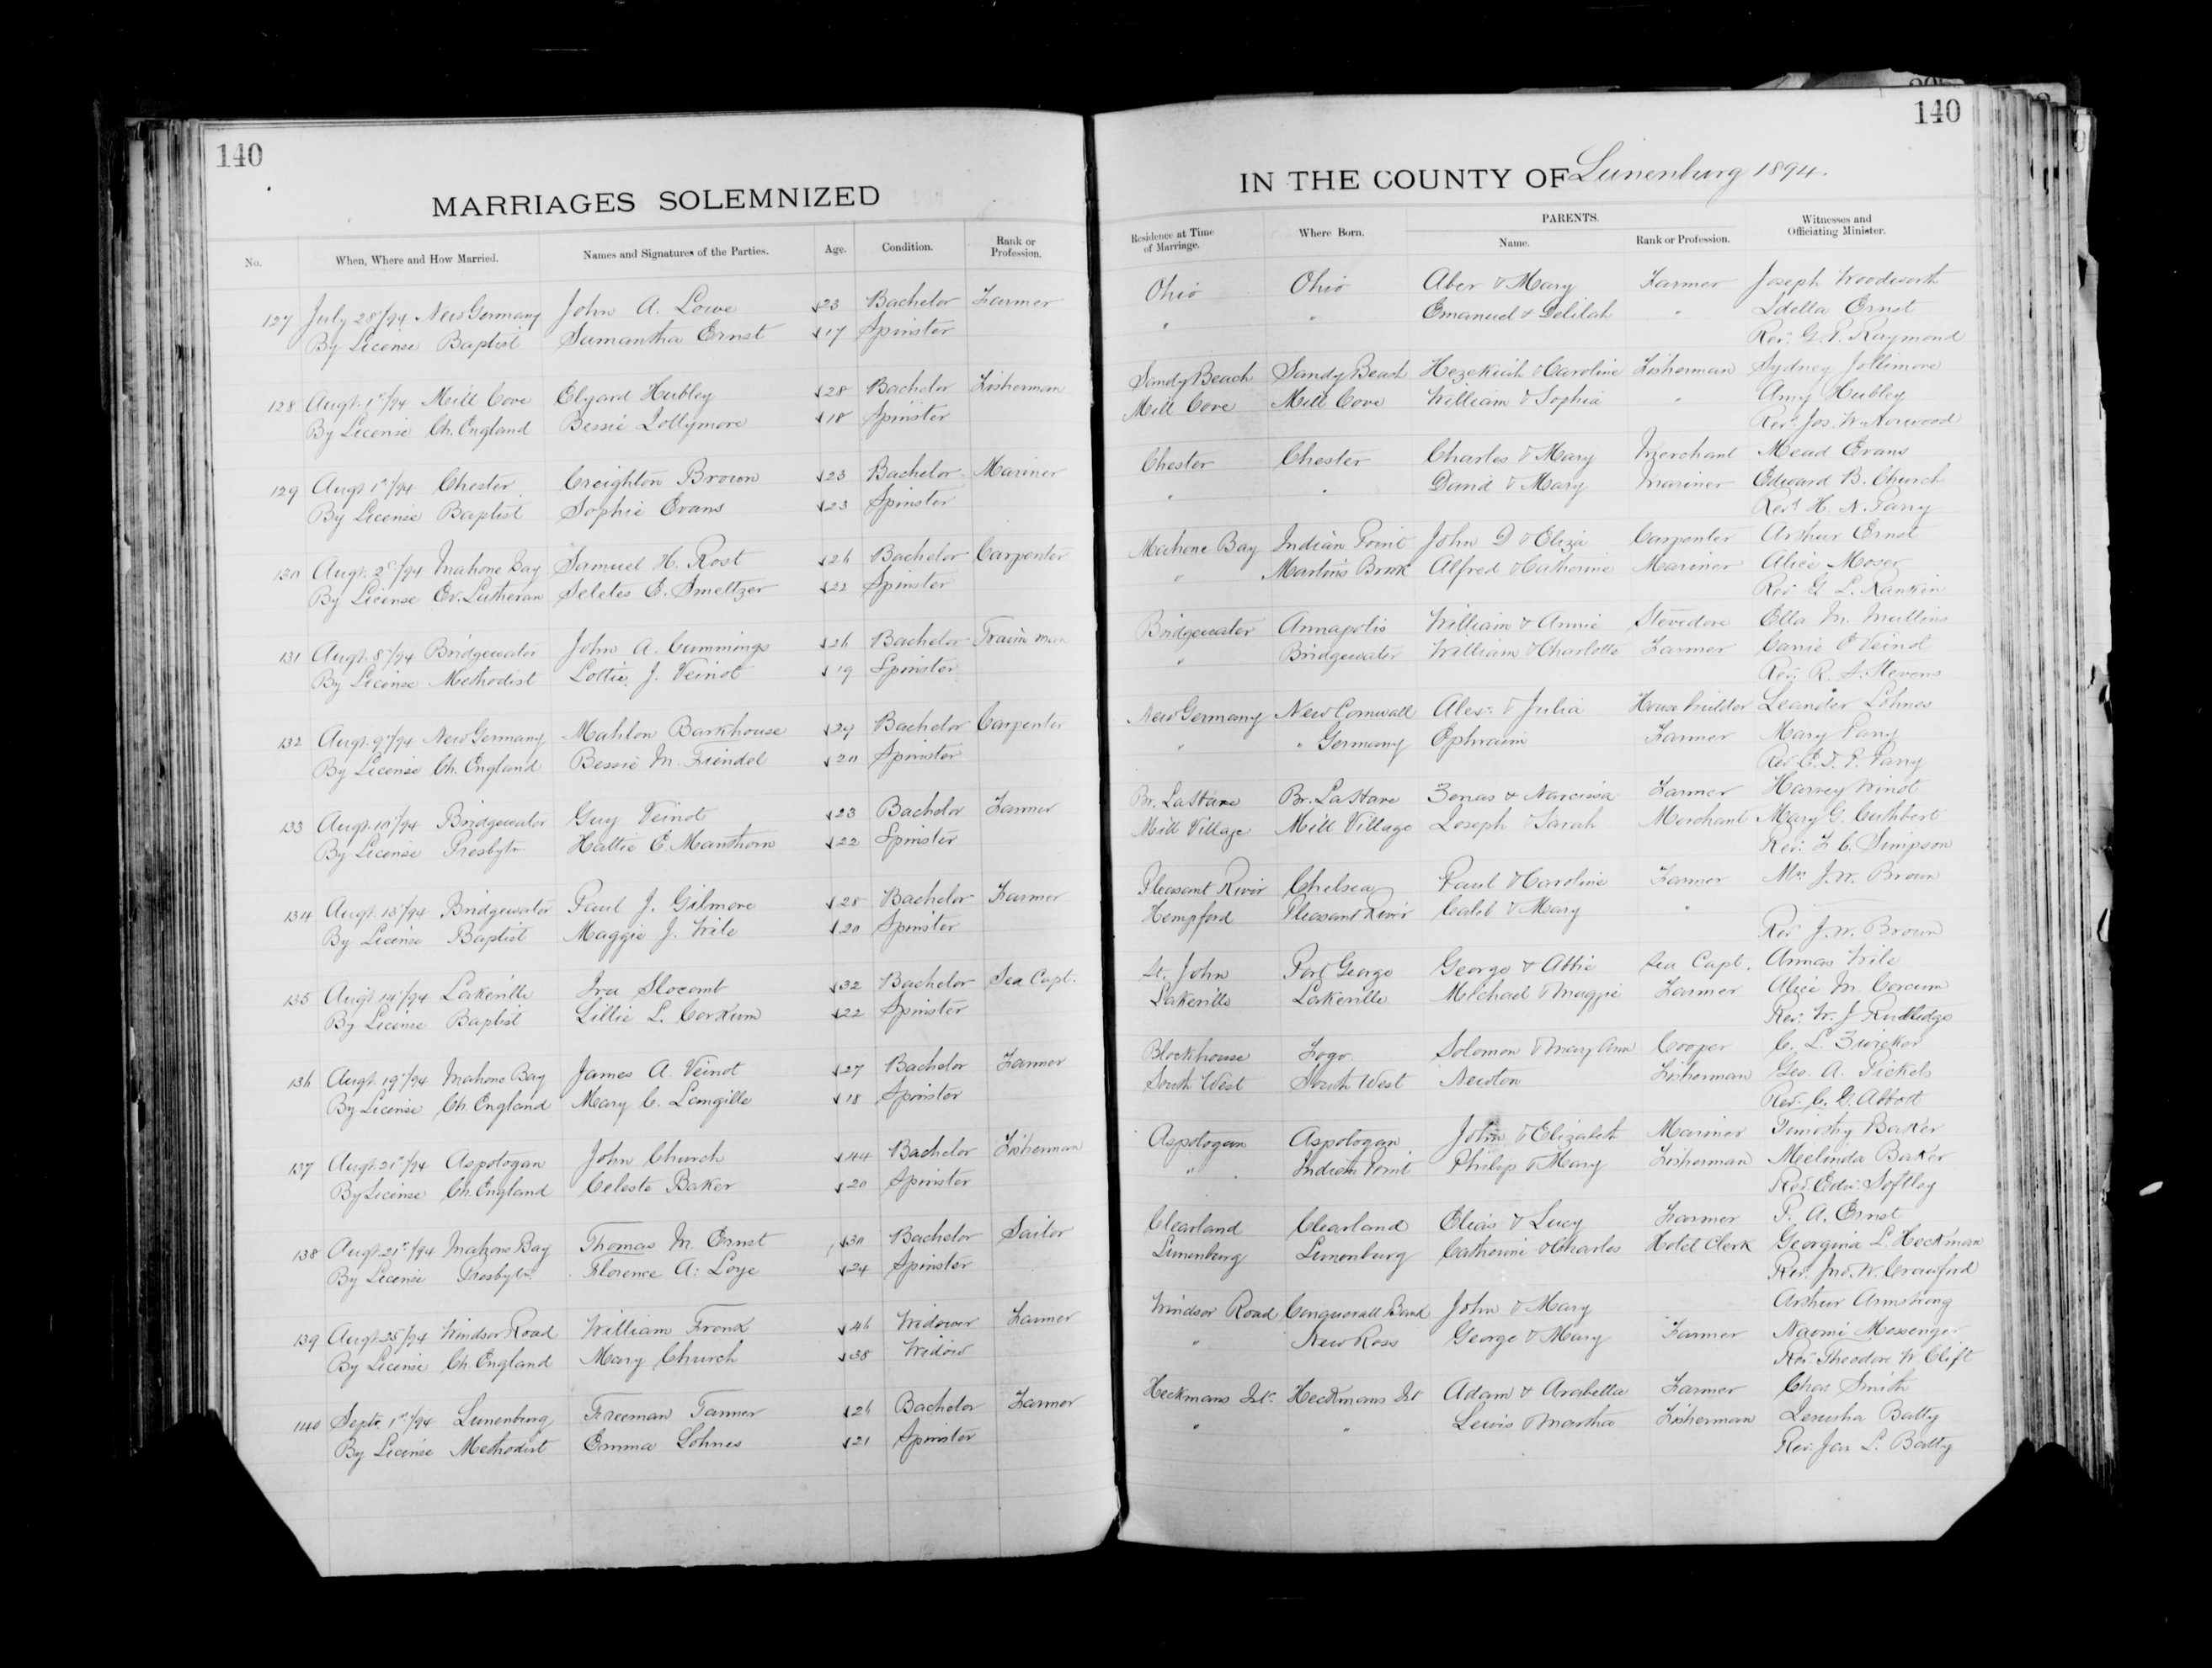 140
MARRIAGES SOLEMNIZED
No. When, Where and How Married. Names and Signatures of the Parties. Age. Condition. Rank or Profession.
127 July 28/94 New Germany John A. Lowe 23 Bachelor Farmer
By License Baptist Samantha Ernst 17 Spinster
128 Augt. 1st/94 Mill Cove Elyard Hubley 28 Bachelor Fisherman
By License Ch. England Bessie Jollymore 18 Spinster
129 Augt 1st/94 Chester Creighton Brown 23 Bachelor Mariner
By License Baptist Sophie Evans 23 Spinster
130 Augt. 2d/94 Mahone Bay Samuel H. Rost 26 Bachelor Carpenter
By License Ev. Lutheran Seletes E. Smeltzer 22 Spinster
131 Augt. 8/94 Bridgewater John A. Cummings 26 Bachelor Train man
By License Methodist Lottie J. Veinot 19 Spinster
132 Augt. 9/94 New Germany Mahlon Barkhouse 29 Bachelor Carpenter
By License Ch. England Bessie M. Feindel 20 Spinster
133 Augt. 10/94 Bridgewater Guy Veinot 23 Bachelor Farmer
By License Presbytn Hattie E. Manthorn 22 Spinster
134 Augt. 13/94 Bridgewater Paul J. Gilmore 28 Bachelor Farmer
By License Baptist Maggie J. Wile 20 Spinster
135 Augt 14/94 Lakeville Ira Slocomb 32 Bachelor Sea Capt.
By License Baptist Lillie L. Corkum 22 Spinster
136 Augt. 19/94 Mahone Bay James A. Veinot 27 Bachelor Farmer
By License Ch. England Mary C. Langille 18 Spinster
137 Augt. 21st/94 Aspotogan John Church 44 Bachelor Fisherman
By License Ch. England Celeste Baker 20 Spinster
138 Augt. 21st/94 Mahone Bay Thomas M. Ernst 30 Bachelor Sailor
By License Presbytn Florence A. Loye 24 Spinster
139 Augt. 25/94 Windsor Road William Fronk 46 Widower Farmer
By License Ch. England Mary Church 38 Widow
140 Septr. 1st/94 Lunenburg Freeman Tanner 26 Bachelor Farmer
By License Methodist Emma Lohnes 21 Spinster
140
IN THE COUNTY OF Lunenburg 1894.
Residence at Time of Marriage. Where Born. PARENTS. Name. Rank or Profession. Witnesses and Officiating Minister.
Ohio Ohio Aber & Mary Farmer Joseph Woodworth
" " Emanuel & Delilah " Idella Ernst
Rev. G. P. Raymond
Sandy Beach Sandy Beach Hezekiah & Caroline Fisherman Sydney Jollimore
Mill Cove Mill Cove William & Sophia " Amy Hubley
Revd. Jos. W. Norwood
Chester Chester Charles & Mary Merchant Mead Evans
" " David & Mary Mariner Edward B. Church
Revd H. N. Parry
Mahone Bay Indian Point John D & Eliza Carpenter Arthur Ernst
" Martins Brook Alfred & Catherine Mariner Alice Moser
Rev. G. L. Rankin
Bridgewater Annapolis William & Annie Stevedore Ella M. Mullins
" Bridgewater William & Charlotte Farmer Carrie E Veinot
Rev. R. S. Stevens
New Germany New Cornwall Alex. & Julia House builder Leander Lohnes
" " Germany Ephraim Farmer Mary Parry
Rev. E. D. P. Parry
Br. LaHave Br. LaHave Zenas & Narcissa Farmer Harvey Vinot
Mill Village Mill Village Joseph & Sarah Merchant Mary G. Cuthbert
Rev. F. C. Simpson
Pleasant River Chelsea Paul & Caroline Farmer Mrs J. W. Brown
Hempford Pleasant River Caleb & Mary "
Rev. J. W. Brown
St. John Port George George & Abbie Sea Capt. Annas Wile
Lakeville Lakeville Michael & Maggie Farmer Alice M Corcum
Rev. W. J. Rutledge
Blockhouse Foyo. Solomon & Mary Ann Cooper C. L. Zwicker
South West South West Newton Fisherman Geo. A. Pickels
Rev. C. D. Abbott
Aspotogan Aspotogan John & Elizabeth Mariner Timothy Baker
" Indian Point Philip & Mary Fisherman Melinda Baker
Rev. Edw. Softley
Clearland Clearland Elias & Lucy Farmer P. A. Ernst
Lunenburg Lunenburg Catherine & Charles Hotel Clerk Georgina L. Heckman
Rev. Jno. W. Crawford
Windsor Road Conquerall Bank John & Mary Arthur Armstrong
" New Ross George & Mary Farmer Naomi Messenger
Rev. Theodore W Clift
Heckmans Isld. Heckmans Isld Adam & Arabella Farmer Chas Smith
" " Lewis & Martha Fisherman Jerusha Batty
Rev. Jas L. Batty